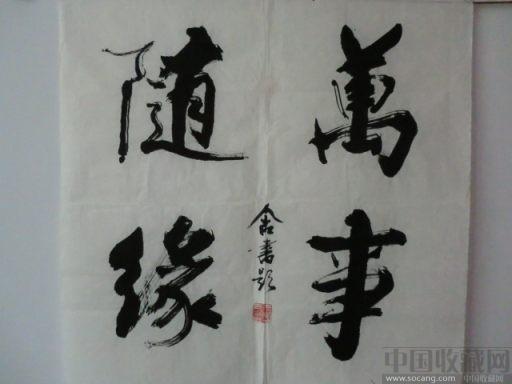 萬事
隨緣
舍書題
中国收藏网
www.socang.com 中国收藏网